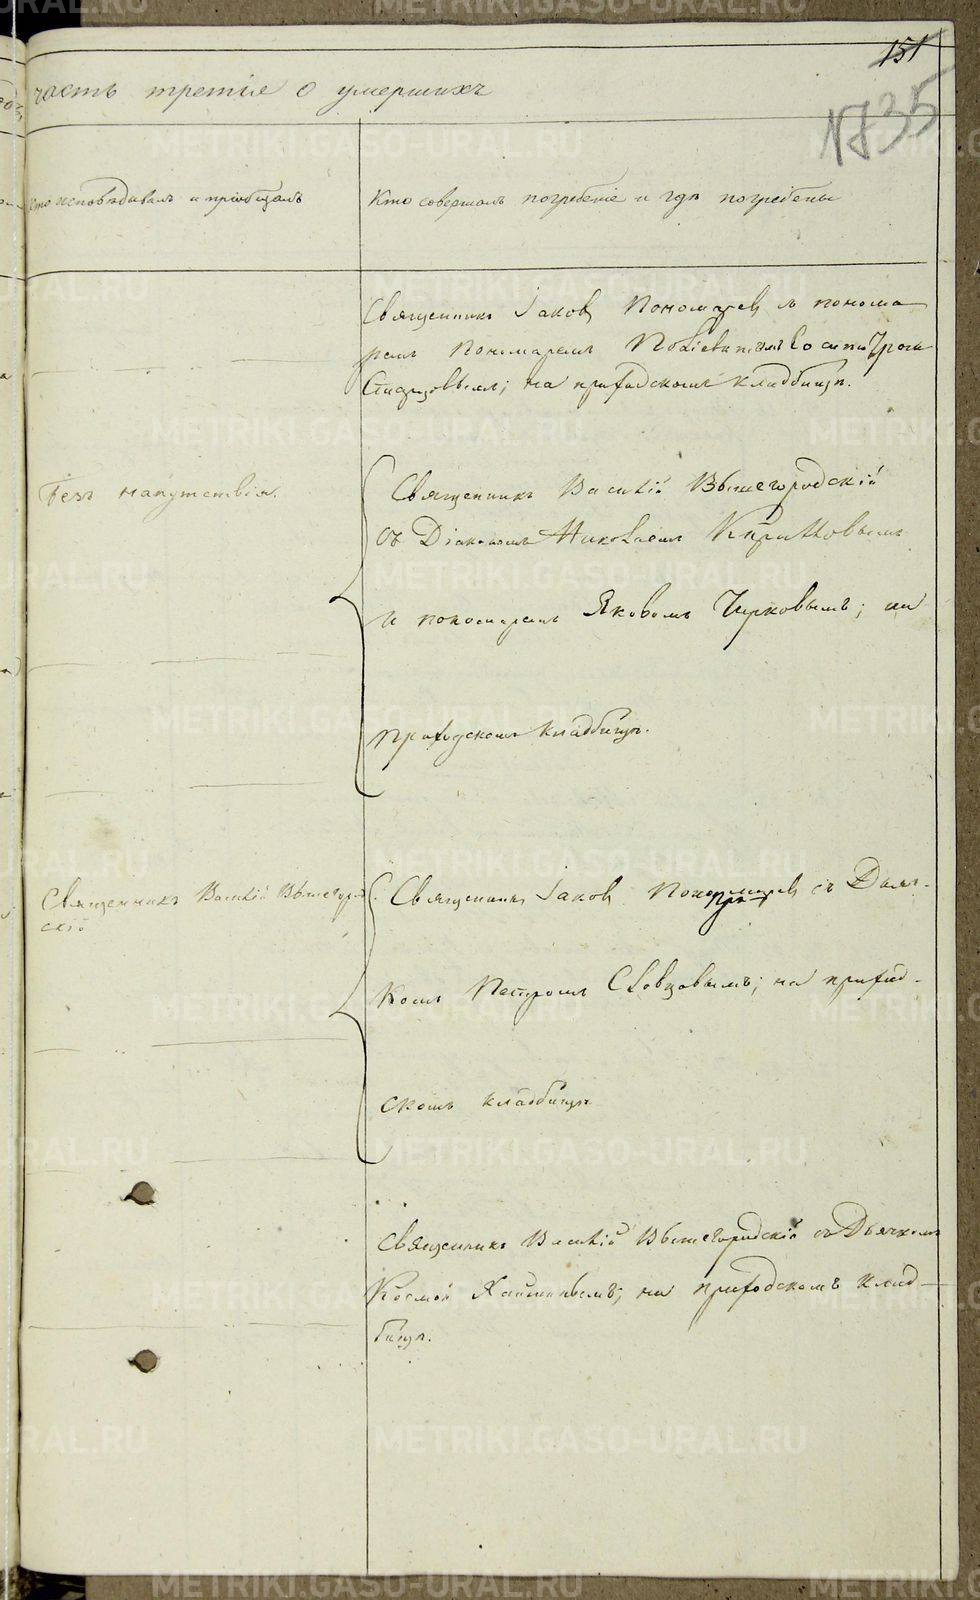 151
135
часть третія о умершихъ
Кто исповѣдывалъ и пріобщалъ
Кто совершалъ погребеніе и гдѣ погребены
Священникъ Іаковъ Пономаревъ съ понома
ремъ Пономаремъ
на приходскомъ кладбищѣ.
Безъ напутствія.
Священникъ Василій Вышегородскій
съ Діакономъ Николаемъ
и пономаремъ Яковомъ Чирковымъ; на
приходскомъ кладбищѣ.
Священникъ Василій Вышегород
скій
Священникъ Іаковъ Пономаревъ съ Дьяч-
комъ Петромъ Словцовымъ; на приход-
скомъ кладбищѣ
Священникъ Василій Вышегородскій съ Дьячкомъ
Космой на приходскомъ клад-
бищѣ.
METRIKI.GASO-URAL.RU